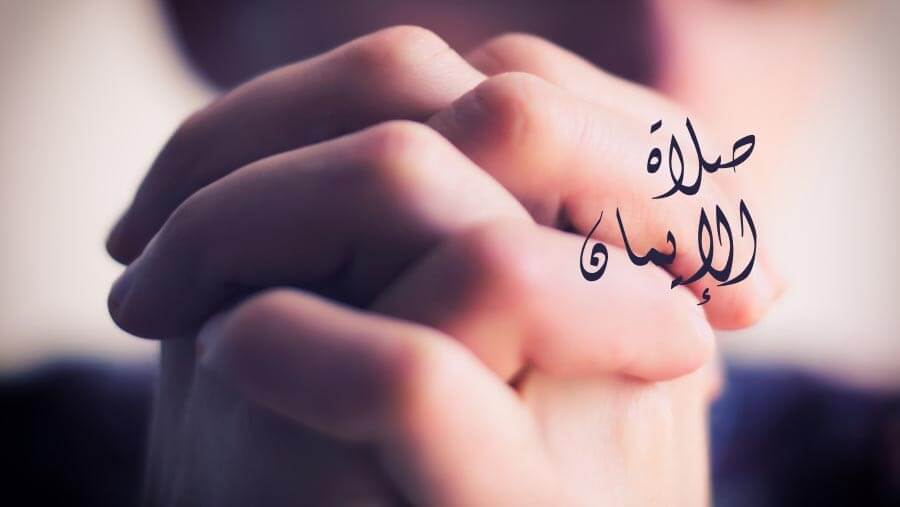 صلاة
الإيمان